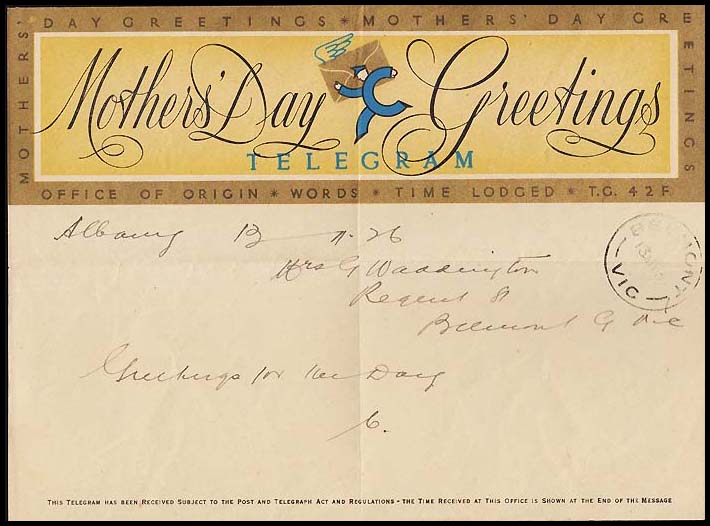 MOTHERS' DAY GREETINGS * MOTHERS' DAY GREETINGS
Mothers' Day Greetings
TELEGRAM
OFFICE OF ORIGIN * WORDS * TIME LODGED * T.G. 42F
Albany 13
Mrs G Waddington
Regent St
Belmont G Vic
BELMONT
VIC
Greetings for the Day
THIS TELEGRAM HAS BEEN RECEIVED SUBJECT TO THE POST AND TELEGRAPH ACT AND REGULATIONS - THE TIME RECEIVED AT THIS OFFICE IS SHOWN AT THE END OF THE MESSAGE